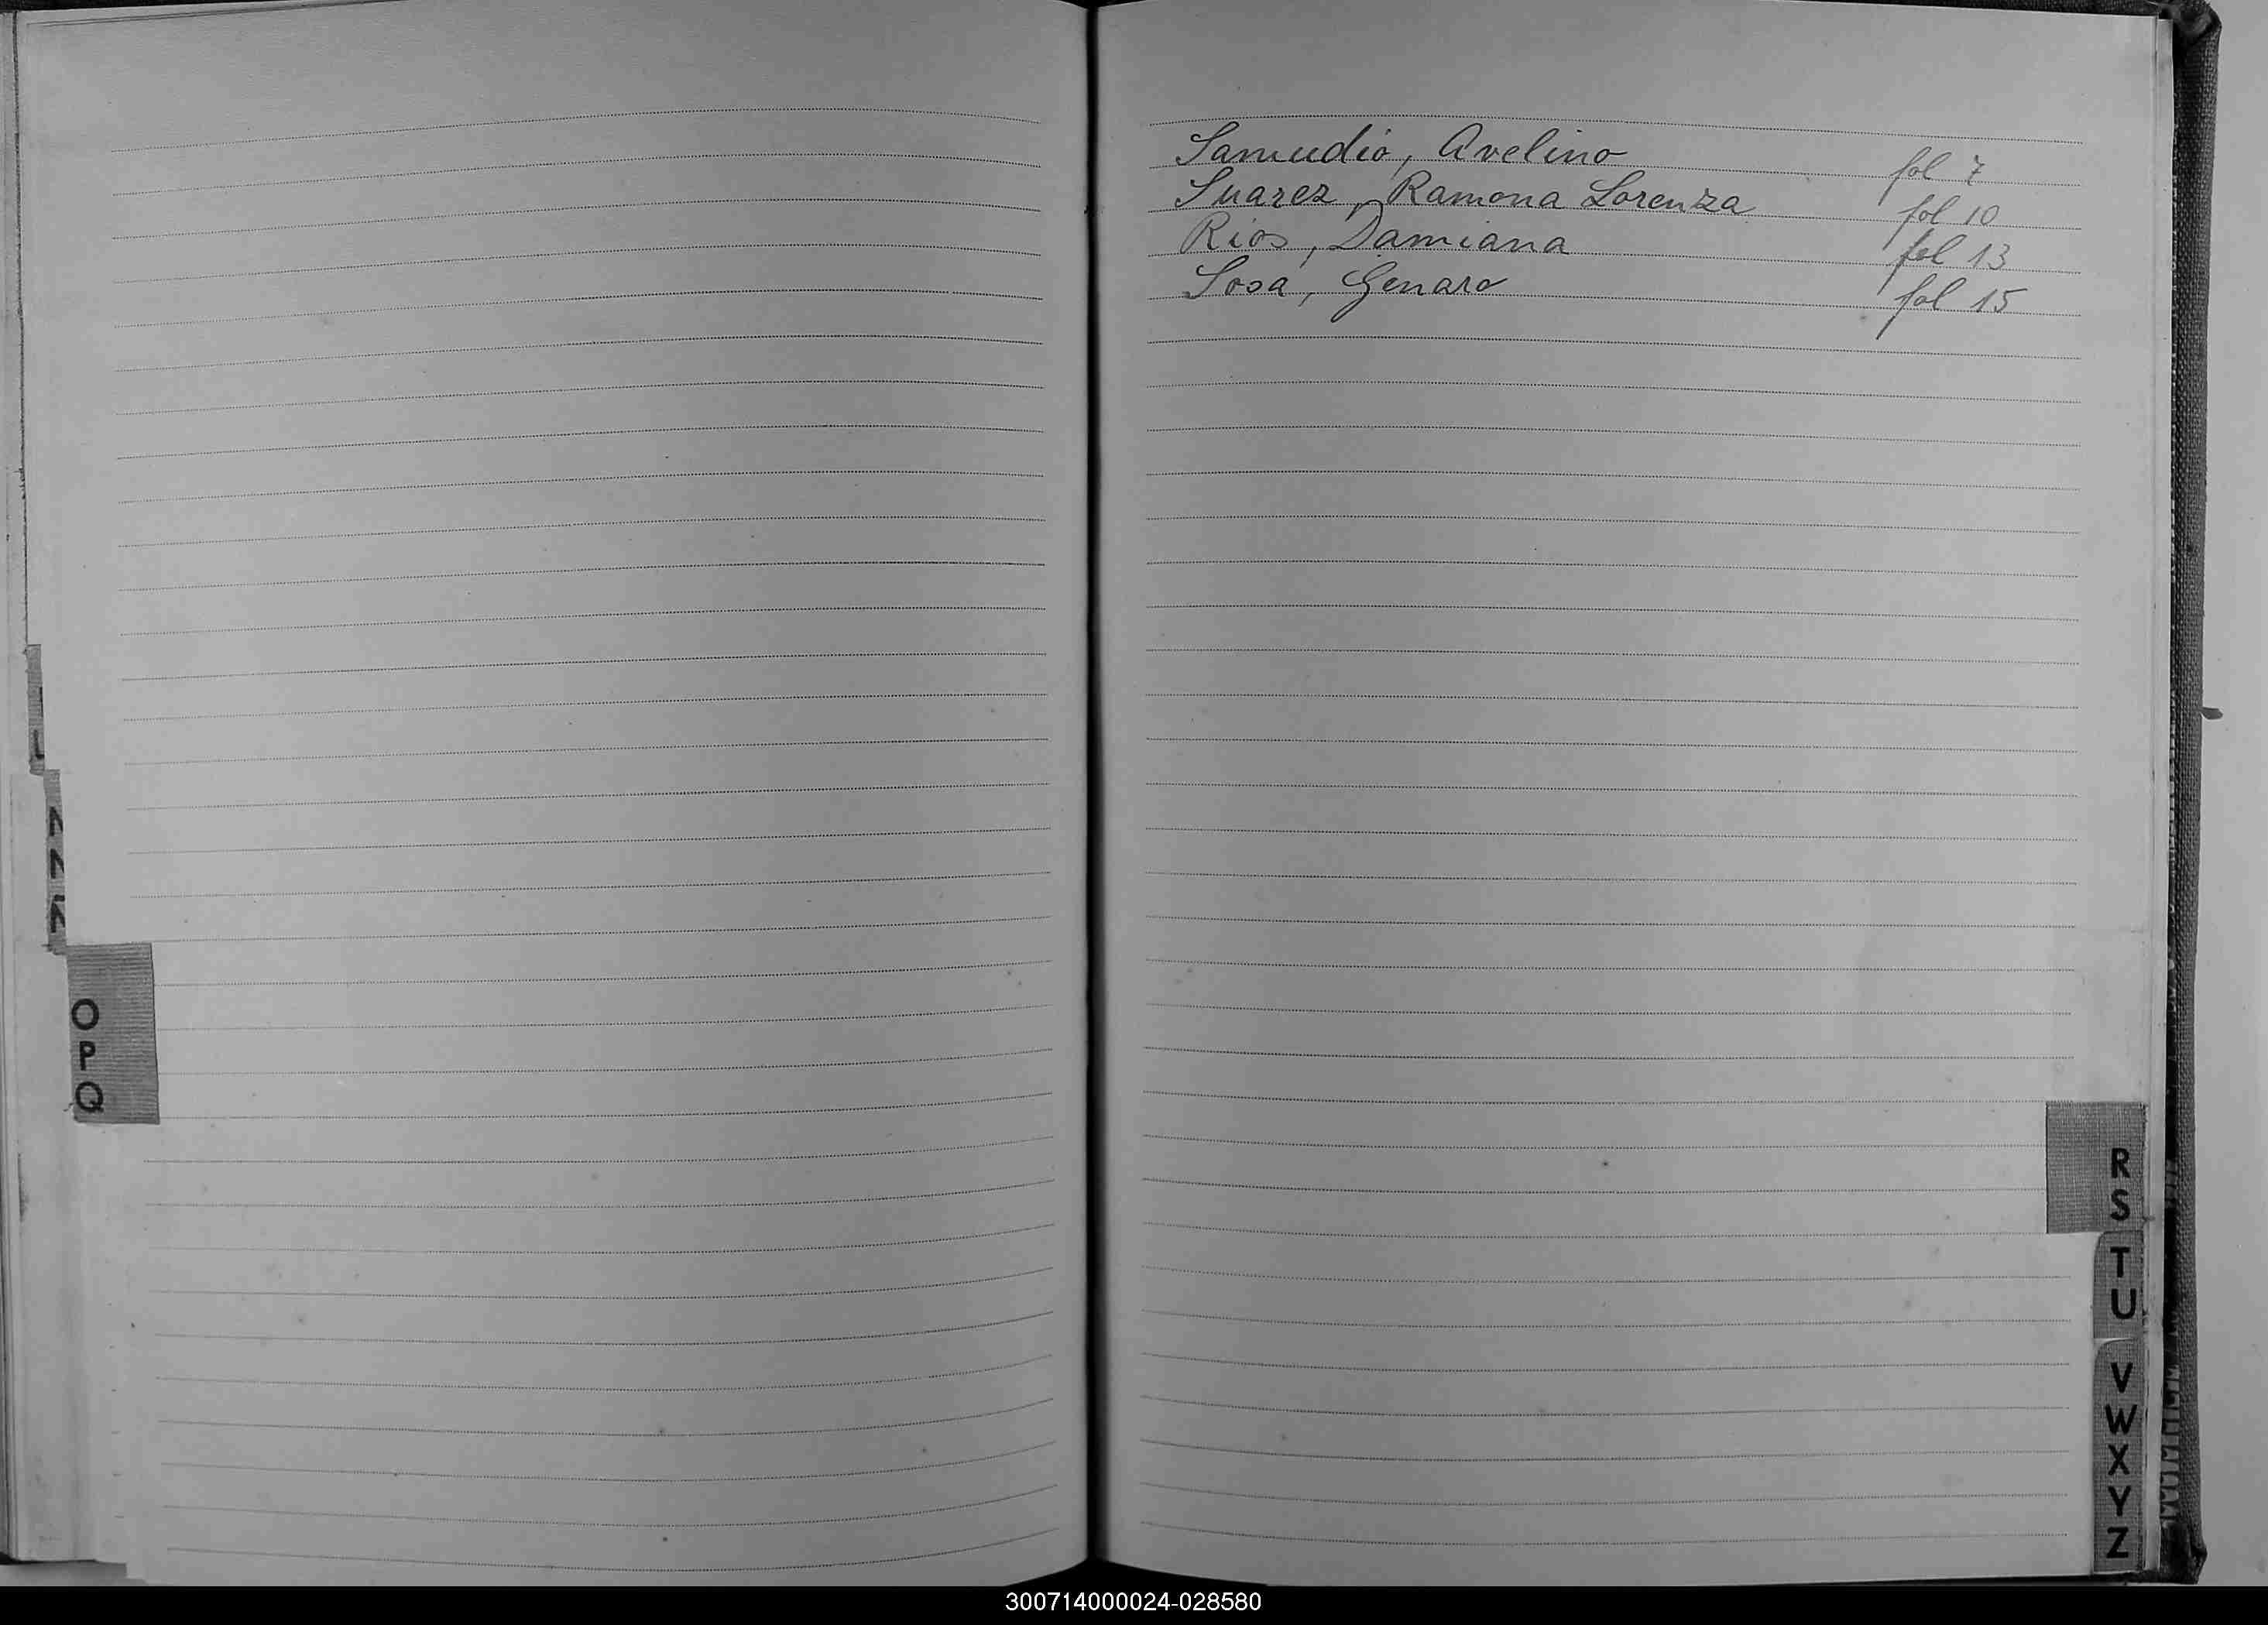 Samudio, Avelino fol 7
Suarez, Ramona Lorenza fol 10
Rios, Damiana fol 13
Sosa, Genaro fol 15
L
N
N
Ñ
O
P
Q
R
S
T
U
V
W
X
Y
Z
300714000024-028580